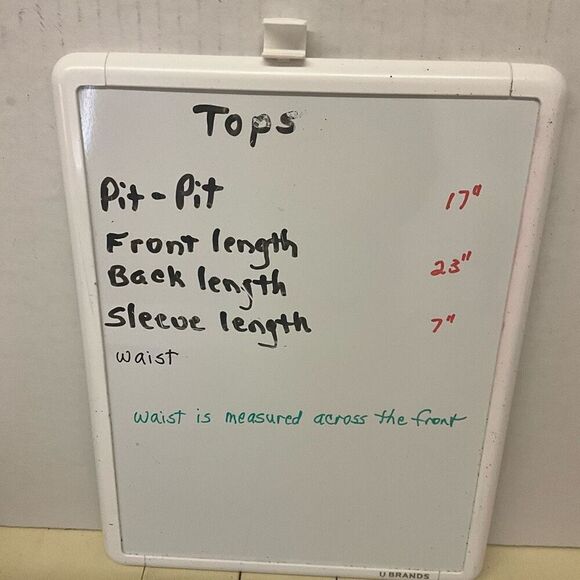 Tops
Pit-Pit 17"
Front length
23"
Back length
Sleeve length 7"
waist
waist is measured across the front
U BRANDS